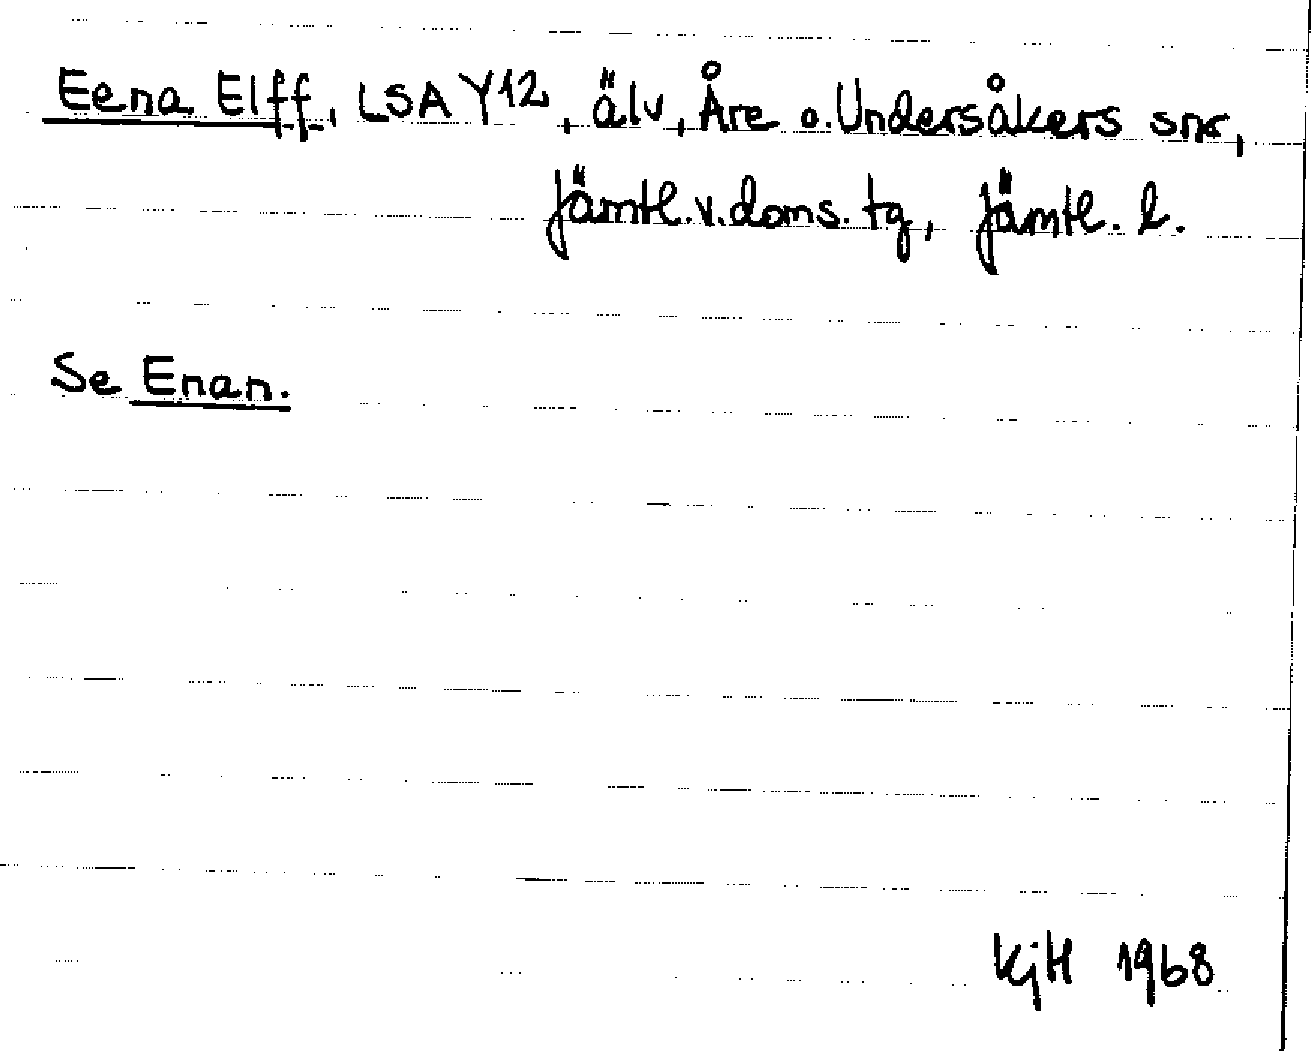 Eena Elff, LSA Y12, älv, Åre o. Undersåkers snr,
Jämtl. v. doms. tg, Jämtl. l.
Se Enan.
KjH 1968